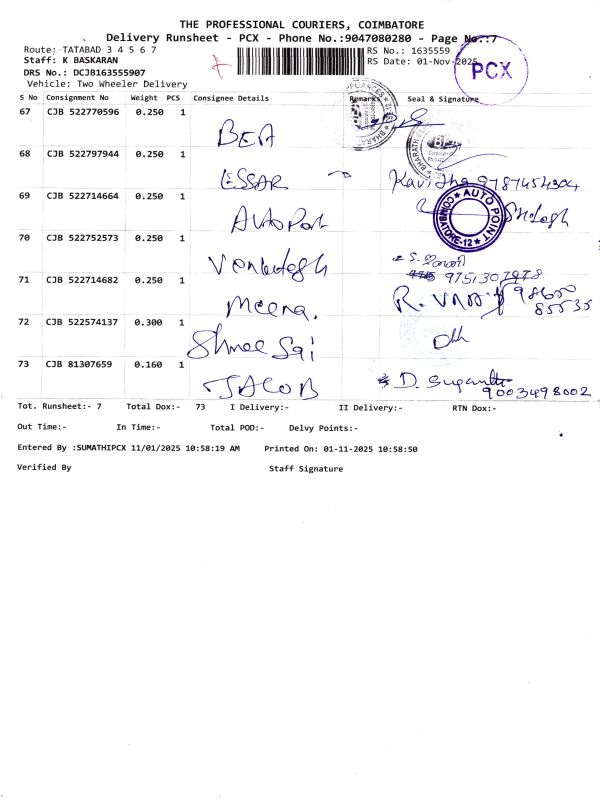 THE PROFESSIONAL COURIERS, COIMBATORE
Delivery Runsheet - PCX - Phone No.:9047080280 - Page No.:7
Route: TATABAD 3 4 5 6 7
RS No.: 1635559
Staff: K BASKARAN
RS Date: 01-Nov-2025
PCX
DRS No.: DCJB163555907
Vehicle: Two Wheeler Delivery
S No Consignment No Weight PCS Consignee Details Remarks Seal & Signature
67 CJB 522770596 0.250 1 BEA
68 CJB 522797944 0.250 1 ESSAR Kavitha 9787454304
69 CJB 522714664 0.250 1 Auto Point AUTO POINT COIMBATORE-12
70 CJB 522752573 0.250 1 Venkatesh
9751307978
71 CJB 522714682 0.250 1 Meena. 98650
85535
72 CJB 522574137 0.300 1 Shree Sai
73 CJB 81307659 0.160 1 JACOB D. Suganthi
9003498002
Tot. Runsheet:- 7 Total Dox:- 73 I Delivery:- II Delivery:- RTN Dox:-
Out Time:- In Time:- Total POD:- Delvy Points:-
Entered By :SUMATHIPCX 11/01/2025 10:58:19 AM Printed On: 01-11-2025 10:58:50
Verified By Staff Signature